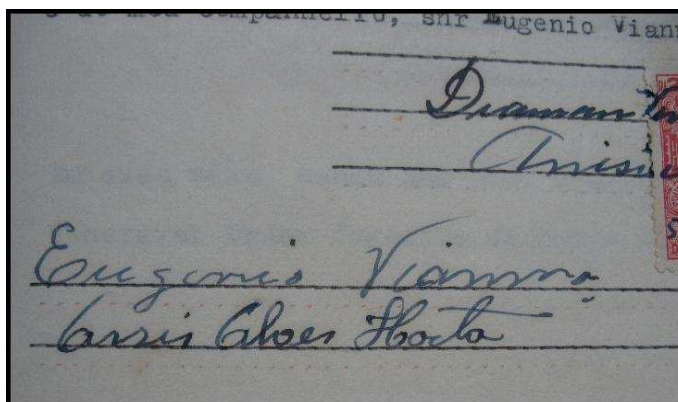 e de meu companheiro, snr Eugenio Viann
Diaman
Anisi
Eugenio Vianna
Assis Alves Horta